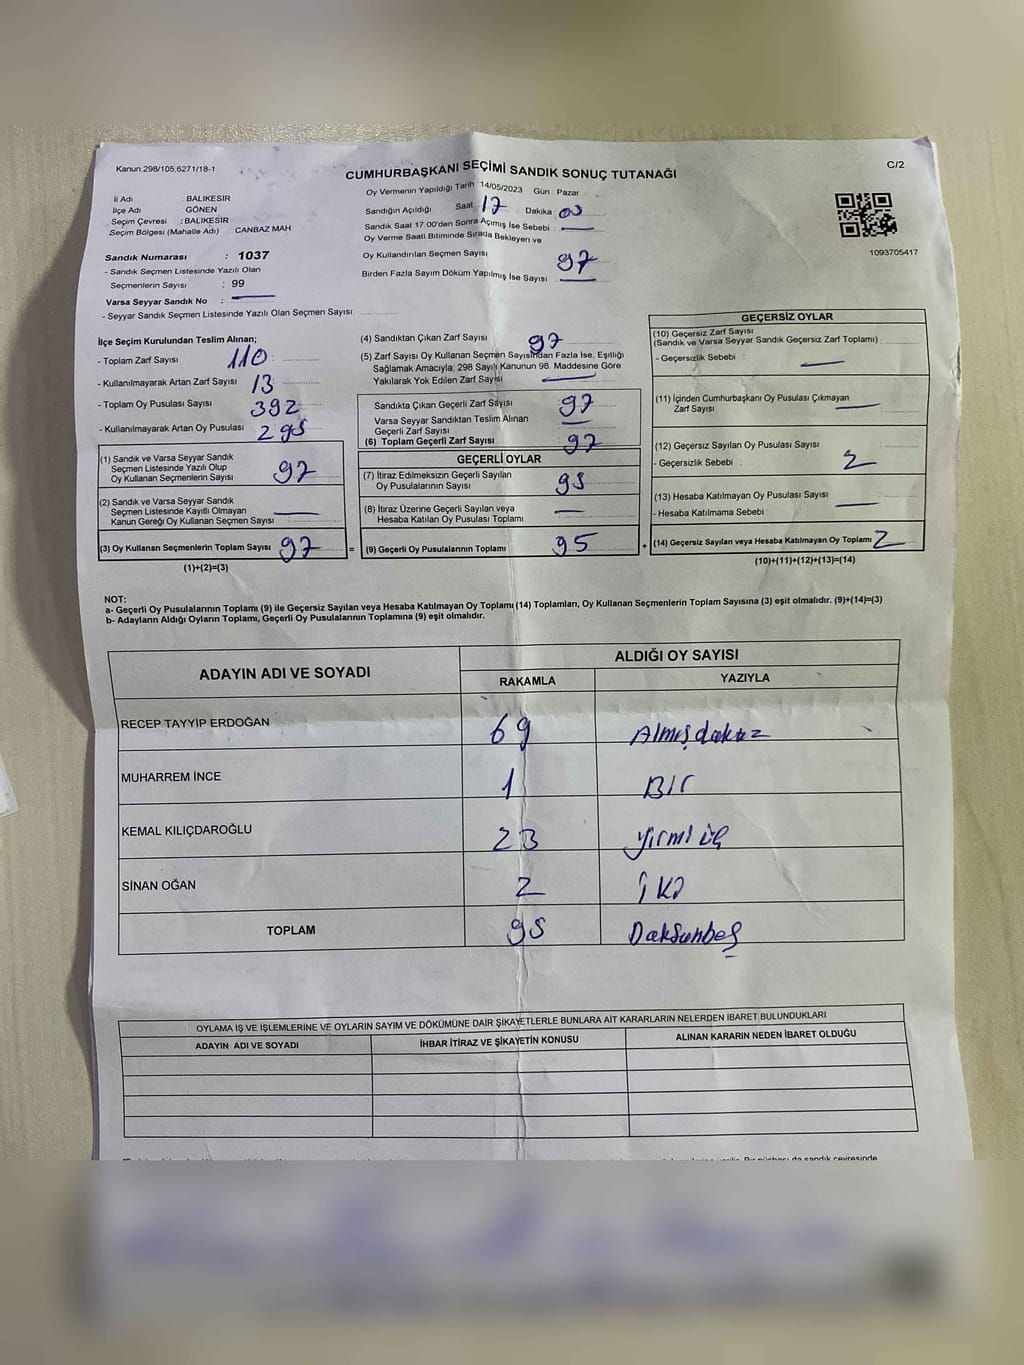 Kanun:298/105,6271/18-1
C/2
CUMHURBAŞKANI SEÇİMİ SANDIK SONUÇ TUTANAĞI
İl Adı : BALIKESİR
İlçe Adı : GÖNEN
Seçim Çevresi : BALIKESİR
Seçim Bölgesi (Mahalle Adı) CANBAZ MAH
Sandık Numarası : 1037
- Sandık Seçmen Listesinde Yazılı Olan
Seçmenlerin Sayısı : 99
Varsa Seyyar Sandık No :
- Seyyar Sandık Seçmen Listesinde Yazılı Olan Seçmen Sayısı:
Oy Vermenin Yapıldığı Tarih 14/05/2023 Gün : Pazar
Sandığın Açıldığı Saat 17 Dakika 00
Sandık Saat 17:00'den Sonra Açımış İse Sebebi :
Oy Verme Saati Bitiminde Sırada Bekleyen ve
Oy Kullandırılan Seçmen Sayısı 97
Birden Fazla Sayım Döküm Yapılmış İse Sayısı :
1093705417
İlçe Seçim Kurulundan Teslim Alınan;
- Toplam Zarf Sayısı 110
- Kullanılmayarak Artan Zarf Sayısı 13
- Toplam Oy Pusulası Sayısı 392
- Kullanılmayarak Artan Oy Pusulası 295
(1) Sandık ve Varsa Seyyar Sandık
Seçmen Listesinde Yazılı Olup
Oy Kullanan Seçmenlerin Sayısı 97
(2) Sandık ve Varsa Seyyar Sandık
Seçmen Listesinde Kayıtlı Olmayan
Kanun Gereği Oy Kullanan Seçmen Sayısı
(3) Oy Kullanan Seçmenlerin Toplam Sayısı 97
(1)+(2)=(3)
(4) Sandıktan Çıkan Zarf Sayısı 97
(5) Zarf Sayısı Oy Kullanan Seçmen Sayısından Fazla İse, Eşitliği
Sağlamak Amacıyla, 298 Sayılı Kanunun 98. Maddesine Göre
Yakılarak Yok Edilen Zarf Sayısı
Sandıkta Çıkan Geçerli Zarf Sayısı 97
Varsa Seyyar Sandıktan Teslim Alınan
Geçerli Zarf Sayısı
(6) Toplam Geçerli Zarf Sayısı 97
GEÇERLİ OYLAR
(7) İtiraz Edilmeksizin Geçerli Sayılan
Oy Pusulalarının Sayısı 95
(8) İtiraz Üzerine Geçerli Sayılan veya
Hesaba Katılan Oy Pusulası Toplamı
= (9) Geçerli Oy Pusulalarının Toplamı 95
GEÇERSİZ OYLAR
(10) Geçersiz Zarf Sayısı
(Sandık ve Varsa Seyyar Sandık Geçersiz Zarf Toplamı) :
- Geçersizlik Sebebi :
(11) İçinden Cumhurbaşkanı Oy Pusulası Çıkmayan
Zarf Sayısı
(12) Geçersiz Sayılan Oy Pusulası Sayısı
- Geçersizlik Sebebi : 2
(13) Hesaba Katılmayan Oy Pusulası Sayısı
- Hesaba Katılmama Sebebi :
+ (14) Geçersiz Sayılan veya Hesaba Katılmayan Oy Toplamı 2
(10)+(11)+(12)+(13)=(14)
NOT:
a- Geçerli Oy Pusulalarının Toplamı (9) ile Geçersiz Sayılan veya Hesaba Katılmayan Oy Toplamı (14) Toplamları, Oy Kullanan Seçmenlerin Toplam Sayısına (3) eşit olmalıdır. (9)+(14)=(3)
b- Adayların Aldığı Oyların Toplamı, Geçerli Oy Pusulalarının Toplamına (9) eşit olmalıdır.
ADAYIN ADI VE SOYADI ALDIĞI OY SAYISI
RAKAMLA YAZIYLA
RECEP TAYYİP ERDOĞAN 69 Almışdokuz
MUHARREM İNCE 1 BİR
KEMAL KILIÇDAROĞLU 23 yirmi üç
SİNAN OĞAN 2 İKİ
TOPLAM 95 Doksanbeş
OYLAMA İŞ VE İŞLEMLERİNE VE OYLARIN SAYIM VE DÖKÜMÜNE DAİR ŞİKAYETLERLE BUNLARA AİT KARARLARIN NELERDEN İBARET BULUNDUKLARI
ADAYIN ADI VE SOYADI İHBAR İTİRAZ VE ŞİKAYETİN KONUSU ALINAN KARARIN NEDEN İBARET OLDUĞU